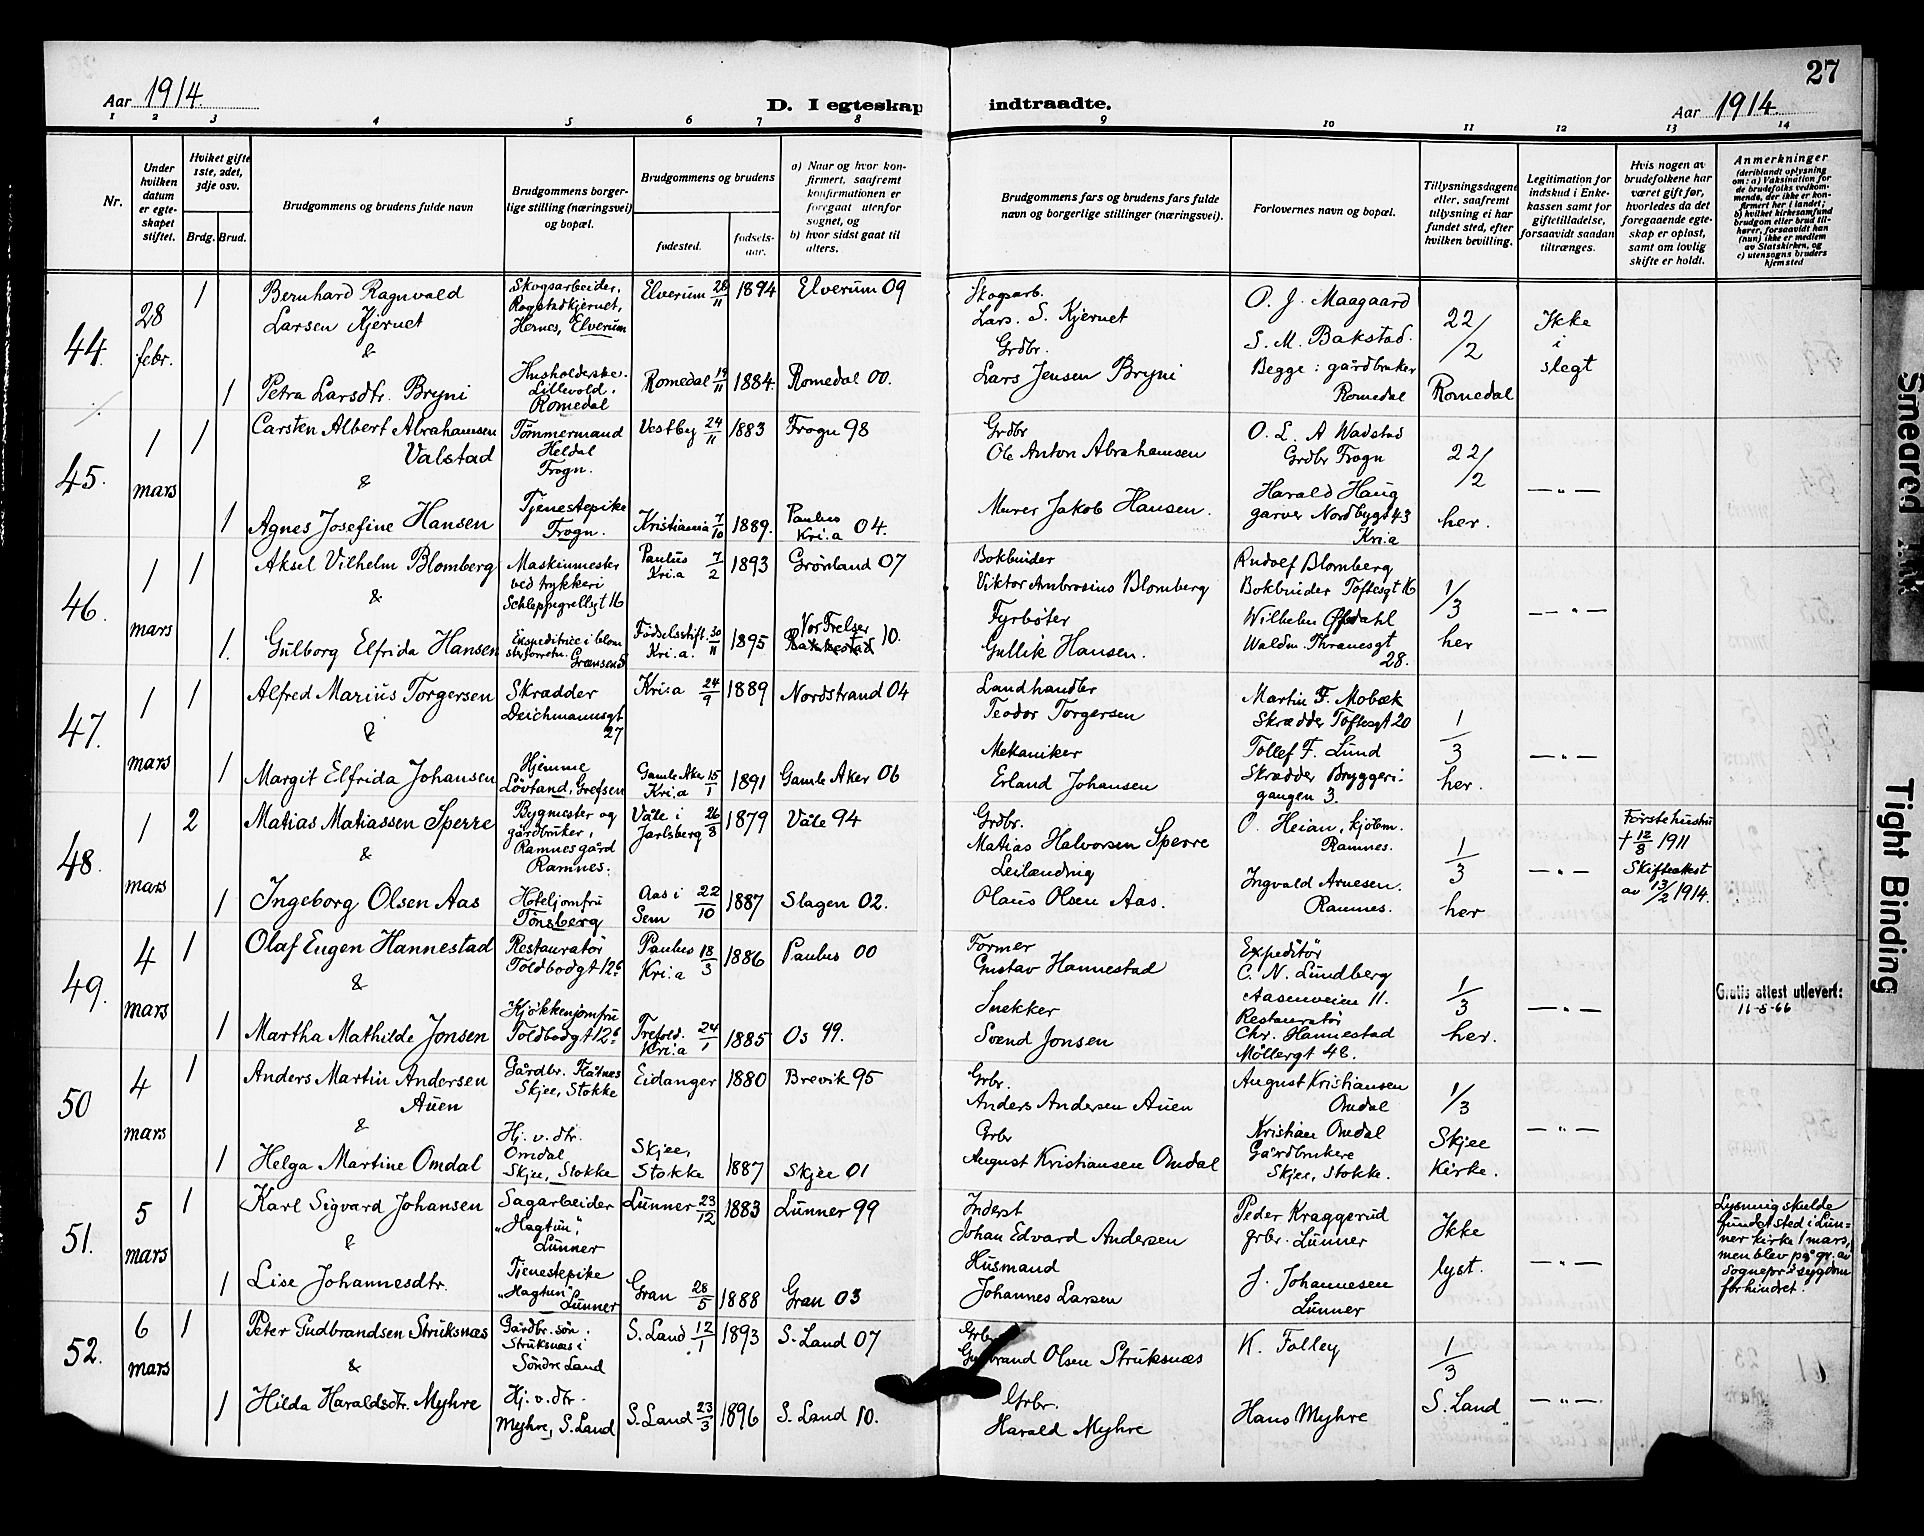 27
Aar 1914.
D. I egteskap indtraadte.
Aar 1914.
1 2 3 4 5 6 7 8 9 10 11 12 13 14
Nr.
Under hvilken datum er egteskapet stiftet.
Hviket gifte 1ste, 2det, 3dje osv.
Brdg. Brud.
Brudgommens og brudens fulde navn
Brudgommens borgerlige stilling (næringsvei) og bopæl.
Brudgommens og brudens
fødested.
fødselsaar.
a) Naar og hvor konfirmert, saafremt konfirmationen er foregaat utenfor sognet, og
b) hvor sidst gaat til alters.
Brudgommens fars og brudens fars fulde navn og borgerlige stillinger (næringsvei).
Forlovernes navn og bopæl.
Tillysningsdagene eller, saafremt tillysning ei har fundet sted, efter hvilken bevilling.
Legitimation for indskud i Enkekassen samt for giftetilladelse, forsaavidt saadan tiltrænges.
Hvis nogen av brudefolkene har været gift før, hvorledes da det foregaaende egteskap er opløst, samt om lovlig skifte er holdt.
Anmerkninger
(deriblandt oplysning om: a) Vaksination for de brudefolks vedkommende, der ikke er konfirmert her i landet;
b) hvilket kirkesamfund brudgom eller brud tilhører, forsaavidt han (hun) ikke er medlem av Statskirken, og
c) utensogns bruders hjemsted
44. 28 febr. 1 Bernhard Ragnvald Larsen Kjernet
Skogsarbeider, Rogstadkjernet, Hernes, Elverum
Elverum 28/11 1894 Elverum 09
Skogsarb. Lars. S. Kjernet
O. J. Maagaard
S. M. Bakstad.
Begge: gårdbruker Romedal
22/2 Romedal
Ikke i slegt
&
1 Petra Larsdtr. Bryni
Husholderske. Lillevold, Romedal
Romedal 19/11 1884. Romedal 00.
Grdbr. Lars Jensen Bryni
45. 1 mars 1 Carsten Albert Abrahamsen Valstad
Tømmermand Heldal Frogn.
Vestby 24/11 1883 Frogn 98
Grdbr Ole Anton Abrahamsen
O. L. A Wadstad Grdbr Frogn
Harald Haug garver Nordbygt 43 Kri.a
22/2 her.
— " —
&
1 Agnes Josefine Hansen
Tjenestepike Frogn.
Kristiania 7/10 1889. Paulus Kri.a 04.
Murer Jakob Hansen.
46. 1 mars 1 Aksel Vilhelm Blomberg
Maskinmester ved trykkeri Schleppegrellsgt 16
Paulus Kri.a 7/2 1893 Grønland 07
Bokbinder Viktor Ambrosius Blomberg
Rudolf Blomberg Bokbinder Toftesgt 16
Wilhelm Øfsdahl Waldm. Thranesgt 28.
1/3 her
— " —
&
1. Gulborg Elfrida Hansen
Ekspeditrice i blomsterforretn. Grænsen 8
Fødselsstift. Kri.a. 30/11 1895 Vor Frelser Bakkestad 10.
Fyrbøter Gullik Hansen.
47. 1 mars 1 Alfred Marius Torgersen
Skrædder Deichmannsgt 27
Kri.a 24/9 1889 Nordstrand 04
Landhandler Teodor Torgersen
Martin F. Mobæk Skrædder Toftesgt 20
Tollef F. Lund Skrædder Bryggerigangen 3.
1/3 her.
— " —
&
1 Margit Elfrida Johansen
Hjemme Lövtand, Grefsen
Gamle Aker Kri.a 15/1 1891 Gamle Aker 06
Mekaniker Erland Johansen
48. 1 mars 2 Matias Matiassen Sperre
Bygmester og gårdbruker, Ramnes gård Ramnes.
Våle i Jarlsberg 26/8 1879 Våle 94
Grdbr. Matias Halvorsen Sperre
O. Heian, kjøbm. Ramnes.
Ingvald Arnesen. Ramnes.
1/3 her
— " —
Förste hustru † 12/8 1911 Skifteattest av 13/2 1914.
&
1 Ingeborg Olsen Aas
Hoteljomfru Tönsberg
Aas i Sem 22/10 1887 Slagen 02.
Leilænding Olaus Olsen Aas.
49. 4 mars 1 Olaf Eugen Hannestad
Restauratør Toldbodgt 12c
Paulus Kri.a 18/3 1886 Paulus 00
Former Gustav Hannestad
Expeditør C. N. Lundberg Aasenveien 11.
Restauratør Chr. Hannestad Möllergt 48.
1/3 her.
— " —
Gratis attest utlevert:
11-5-66
&
1 Martha Mathilde Jonsen
Kjøkkenjomfru Toldbodgt 12c
Trefold. Kri.a 24/1 1885 Os 99.
Snekker Svend Jonsen
50 4 mars 1 Anders Martin Andersen Auen
Gårdbr. Flåtnes Skjee, Stokke
Eidanger 1880 Brevik 95
Grbr. Anders Andersen Auen
August Kristiansen Omdal
Kristian Omdal Gårdbrukere Skjee, Stokke.
1/3 Skjee Kirke.
— " —
&
1 Helga Martine Omdal
Hj. v. dtr. Omdal Skjee, Stokke
Skjee, Stokke 1887 Skjee 01
Grbr August Kristiansen Omdal
51. 5 mars 1 Karl Sigvard Johansen
Sagarbeider "Hagtun", Lunner
Lunner 23/12 1883 Lunner 99
Inderst Johan Edvard Andersen
Peder Kraggerud grbr. Lunner
J. Johannesen Lunner
Ikke lyst.
— " —
Lysning skulde fundet sted i Lunner kirke 1 mars, men blev på gr. av sognepr.s sygdom forhindret.
&
1 Lise Johannesdtr.
Tjenestepike "Hagtun" Lunner
Gran 28/5 1888 Gran 03
Husmand Johannes Larsen
52. 6 mars 1 Peter Gudbrandsen Struksnæs
Gårdbr. søn. Struksnæs i Söndre Land
S. Land 12/1 1893 S. Land 07
Grbr. Gudbrand Olsen Struksnæs
K. Folley
Hans Myhre
1/3 S. Land
— " —
&
1 Hilda Haraldsdtr. Myhre
Hj. v. dtr. Myhre, S. Land
S. Land 23/3 1896 S. Land 10.
Grbr. Harald Myhre
Smeared Ink
Tight Binding